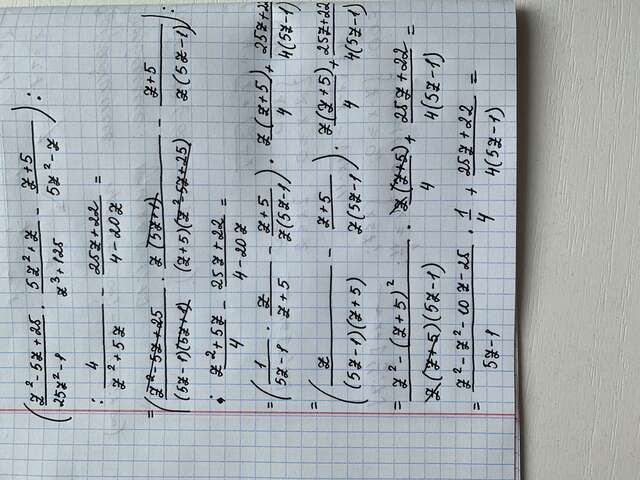 ( (z² - 5z + 25)/(25z² - 1) · (5z² + z)/(z³ + 125) - (z+5)/(5z² - z) ) :
: 4/(z² + 5z) - (25z + 22)/(4 - 20z) =
= ( (z² - 5z + 25)/((5z-1)(5z+1)) · (z(5z+1))/((z+5)(z² - 5z + 25)) - (z+5)/(z(5z-1)) ) :
· (z² + 5z)/4 - (25z + 22)/(4 - 20z) =
= ( 1/(5z-1) · z/(z+5) - (z+5)/(z(5z-1)) ) · (z(z+5))/4 + (25z+22)/(4(5z-1))
= ( z/((5z-1)(z+5)) - (z+5)/(z(5z-1)) ) · (z(z+5))/4 + (25z+22)/(4(5z-1))
= (z² - (z+5)²)/(z(z+5)(5z-1)) · (z(z+5))/4 + (25z+22)/(4(5z-1)) =
= (z² - z² - 10z - 25)/(5z-1) · 1/4 + (25z+22)/(4(5z-1)) =